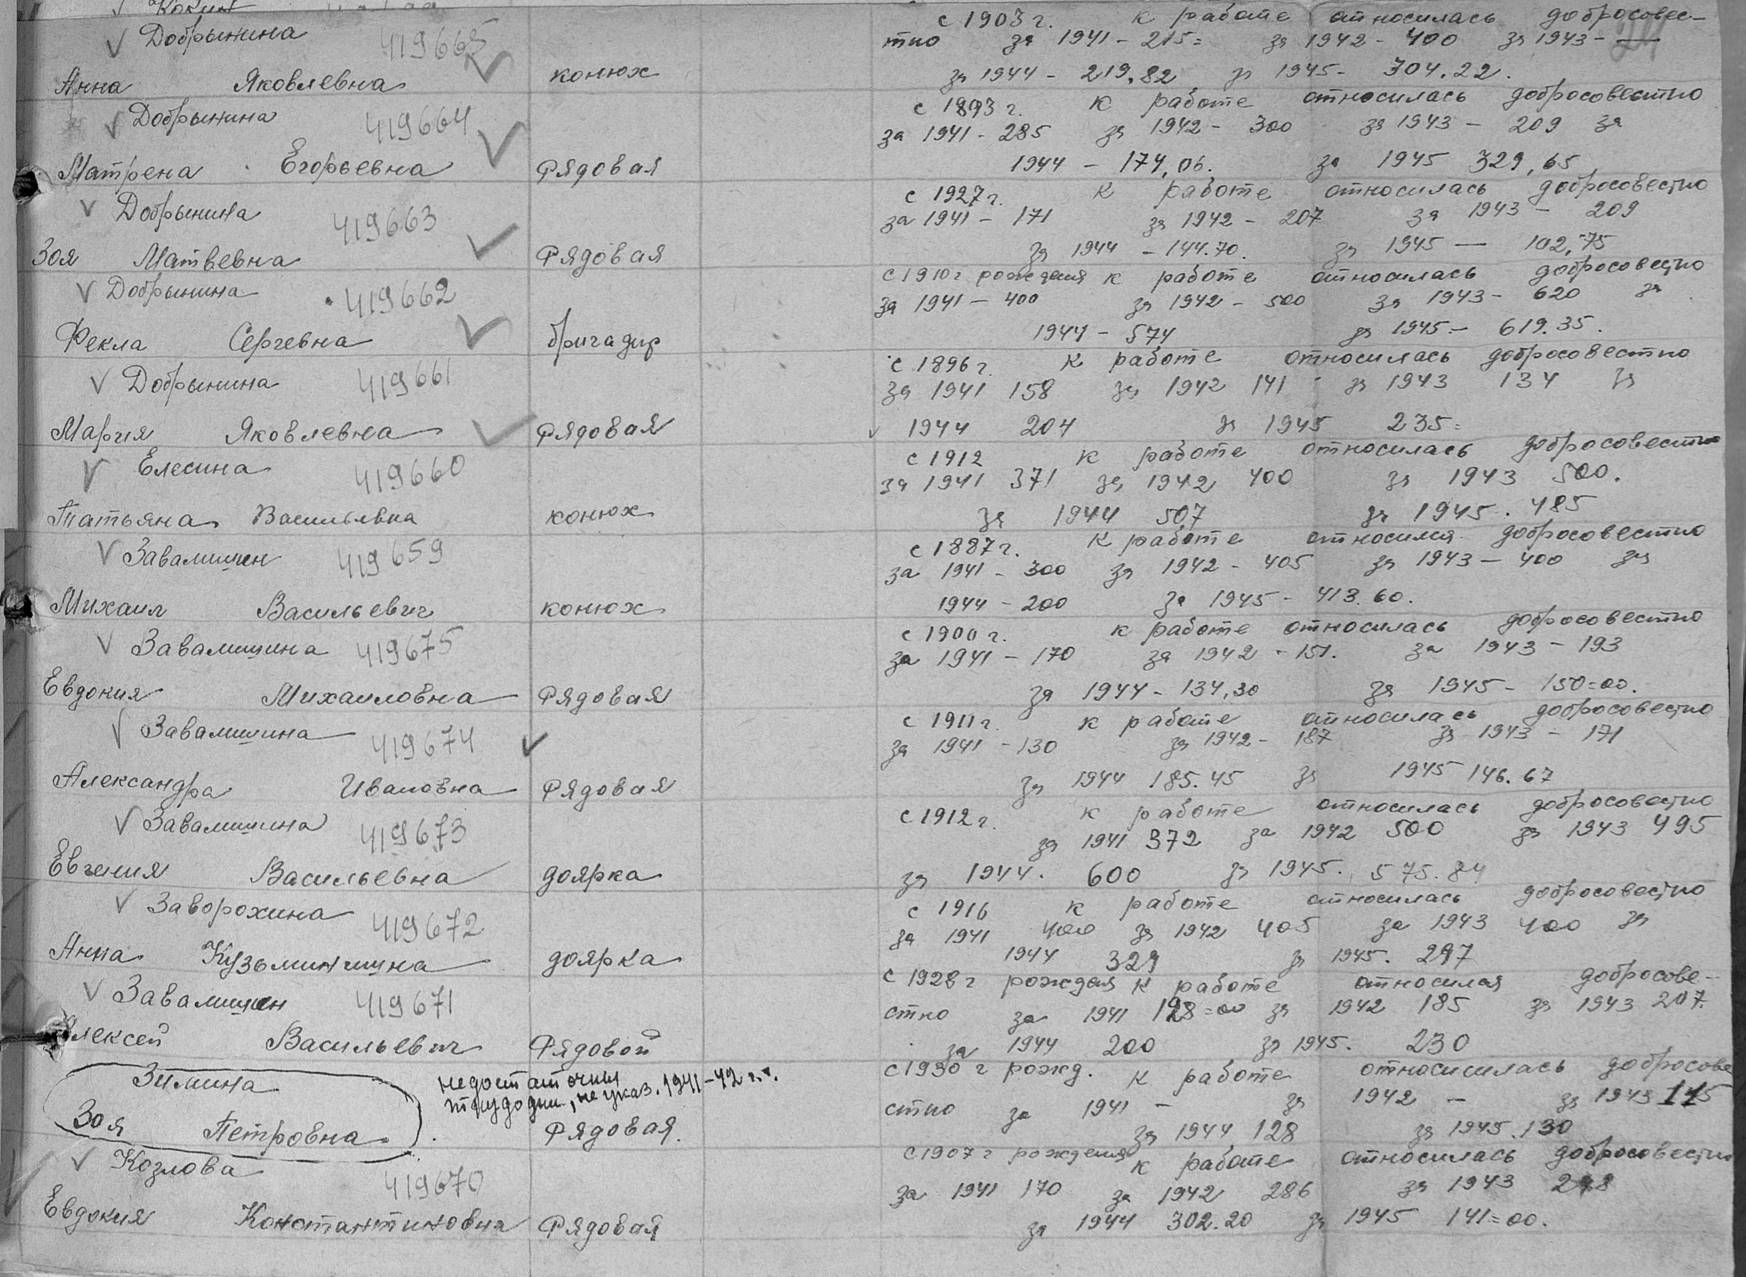 с 1903 г. к работе относилась добросовес-
Добрынина 419665 тно за 1941 - 215= за 1942 - 400 за 1943 -
Анна Яковлевна конюх за 1944 - 219,82 за 1945 - 304.22.
Добрынина 419664 с 1893 г. к работе относилась добросовестно
за 1941 - 285 за 1942 - 300 за 1943 - 209 за
Матрена Егорьевна Рядовая 1944 - 174,06. за 1945 329,65
Добрынина 419663 с 1927 г. к работе относилась добросовестно
за 1941 - 171 за 1942 - 207 за 1943 - 209
Зоя Матвевна Рядовая за 1944 - 144.70. за 1945 - 102,75
Добрынина 419662 с 1910 г рождения к работе относилась добросовестно
за 1941 - 400 за 1942 - 500 за 1943 - 620 за
Фекла Сергевна бригадир 1944 - 574 за 1945 - 619.35.
Добрынина 419661 с 1896 г. к работе относилась добросовестно
за 1941 158 за 1942 141 за 1943 134 за
Мария Яковлевна Рядовая 1944 204 за 1945 235=
Елесина 419660 с 1912 к работе относилась добросовестно
за 1941 371 за 1942 400 за 1943 500.
Татьяна Васильевна конюх за 1944 507 за 1945. 485
Завалишен 419659 с 1887 г. к работе относился добросовестно
за 1941 - 300 за 1942 - 405 за 1943 - 400 за
Михаил Васильевич конюх 1944 - 200 за 1945 - 413.60.
Завалишина 419675 с 1900 г. к работе относилась добросовестно
за 1941 - 170 за 1942 - 151. за 1943 - 193
Евдокия Михаиловна Рядовая за 1944 - 134,30 за 1945 - 150=00.
Завалишина 419674 с 1911 г. к работе относилась добросовестно
за 1941 - 130 за 1942 - 187 за 1943 - 171
Александра Ивановна Рядовая за 1944 185.45 за 1945 146.67
Завалишина 419673 с 1912 г. к работе относилась добросовестно
за 1941 372 за 1942 500 за 1943 495
Евгения Васильевна доярка за 1944. 600 за 1945. 575.84
Заворохина 419672 с 1916 к работе относилась добросовестно
за 1941 400 за 1942 405 за 1943 400 за
Анна Кузьминишна доярка 1944 329 за 1945. 297
Завалишен 419671 с 1928 г рождения к работе относился добросове-
стно за 1941 198=00 за 1942 185 за 1943 207.
Алексей Васильевич Рядовой за 1944 200 за 1945. 230
Зимина недостаточны с 1930 г рожд. к работе относисилась добросове
трудодни, не указ. 1941-42 г.г. стно за 1941 - за 1942 - за 1943 115
Зоя Петровна Рядовая. за 1944, 128 за 1945. 130
Козлова 419670 с 1907 г рождения к работе относилась добросовестно
за 1941 170 за 1942 286 за 1943
Евдокия Константиновна Рядовая за 1944 302.20 за 1945 141=00.